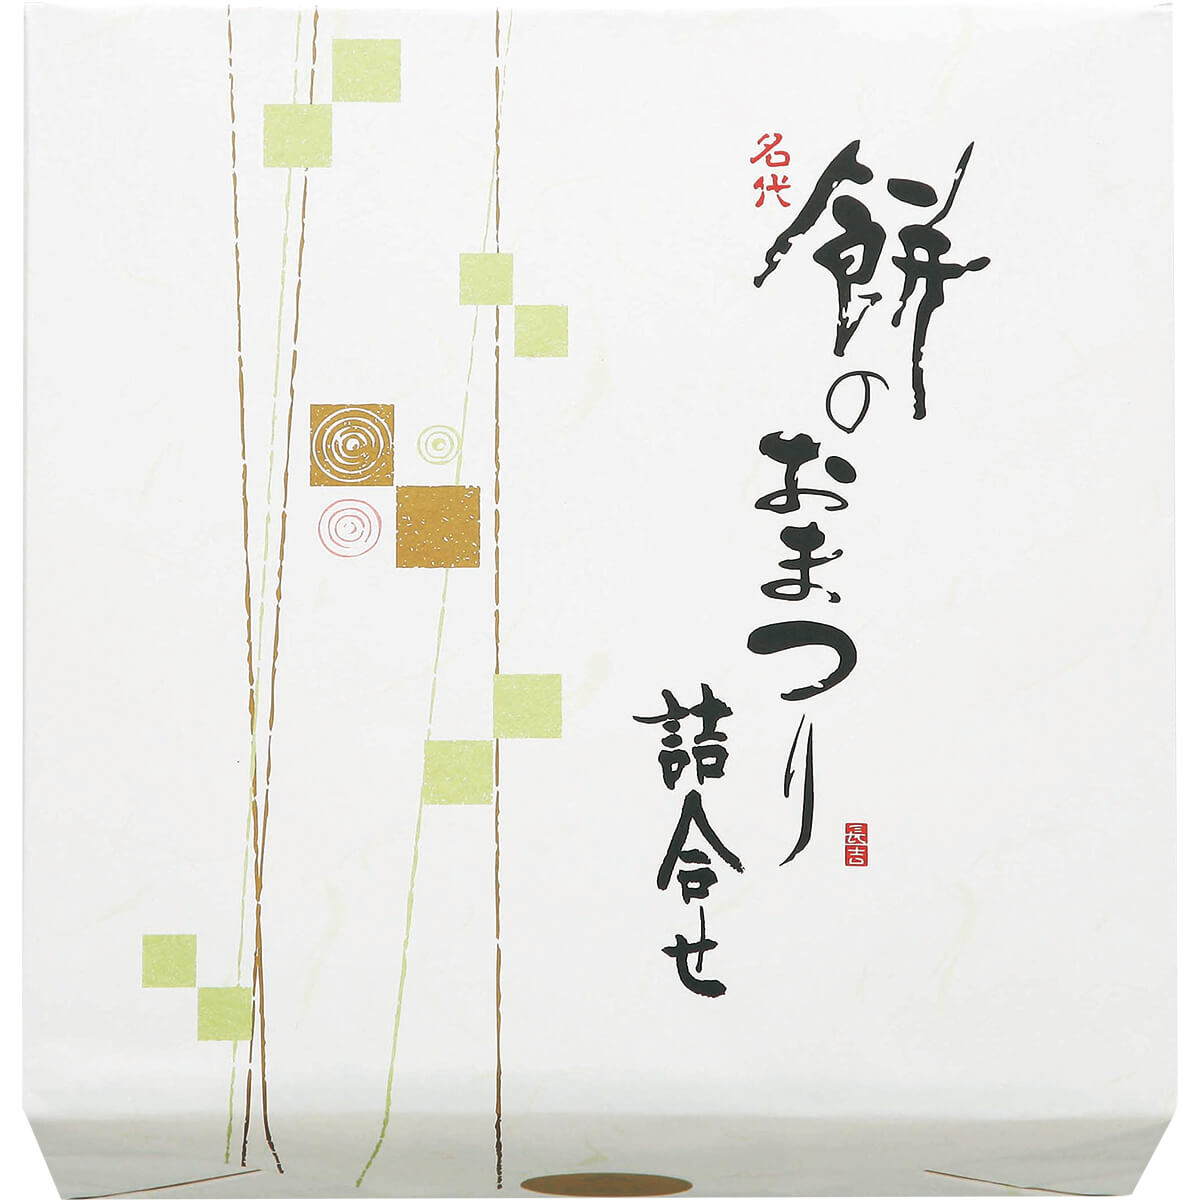 名代
餅のおまつり
詰合せ
長吉